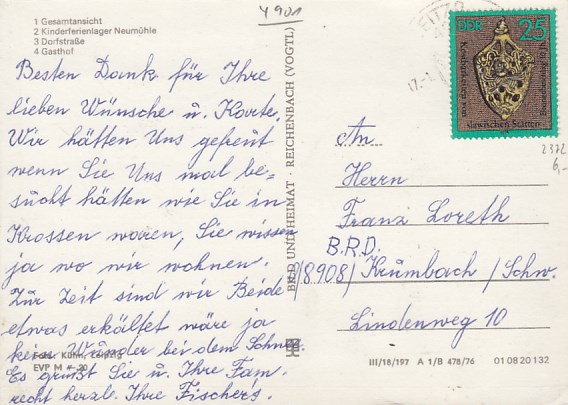 Y 901
1 Gesamtansicht
2 Kinderferienlager Neumühle
3 Dorfstraße
4 Gasthof
Besten Dank für Ihre
lieben Wünsche u. Karte,
Wir hätten Uns gefreut
wenn Sie Uns mal be=
sucht hätten wie Sie in
Krossen waren, Sie wissen
ja wo wir wohnen.
Zur Zeit sind wir Beide
etwas erkältet wäre ja
kein Wunder bei dem Schnee.
Es grüßt Sie u. Ihre Fam.
recht herzl. Ihre Fischer's.
Foto: Kühn, Leipzig
EVP M -,20
BILD UND HEIMAT · REICHENBACH (VOGTL)
DDR 25
slawischen Stätten
17.-1
2372
6,-
An
Herrn
Franz Loreth
B.R.D.
/8908/ Krumbach / Schw.
Lindenweg 10
III/18/197 A 1/B 478/76 01 08 20 132